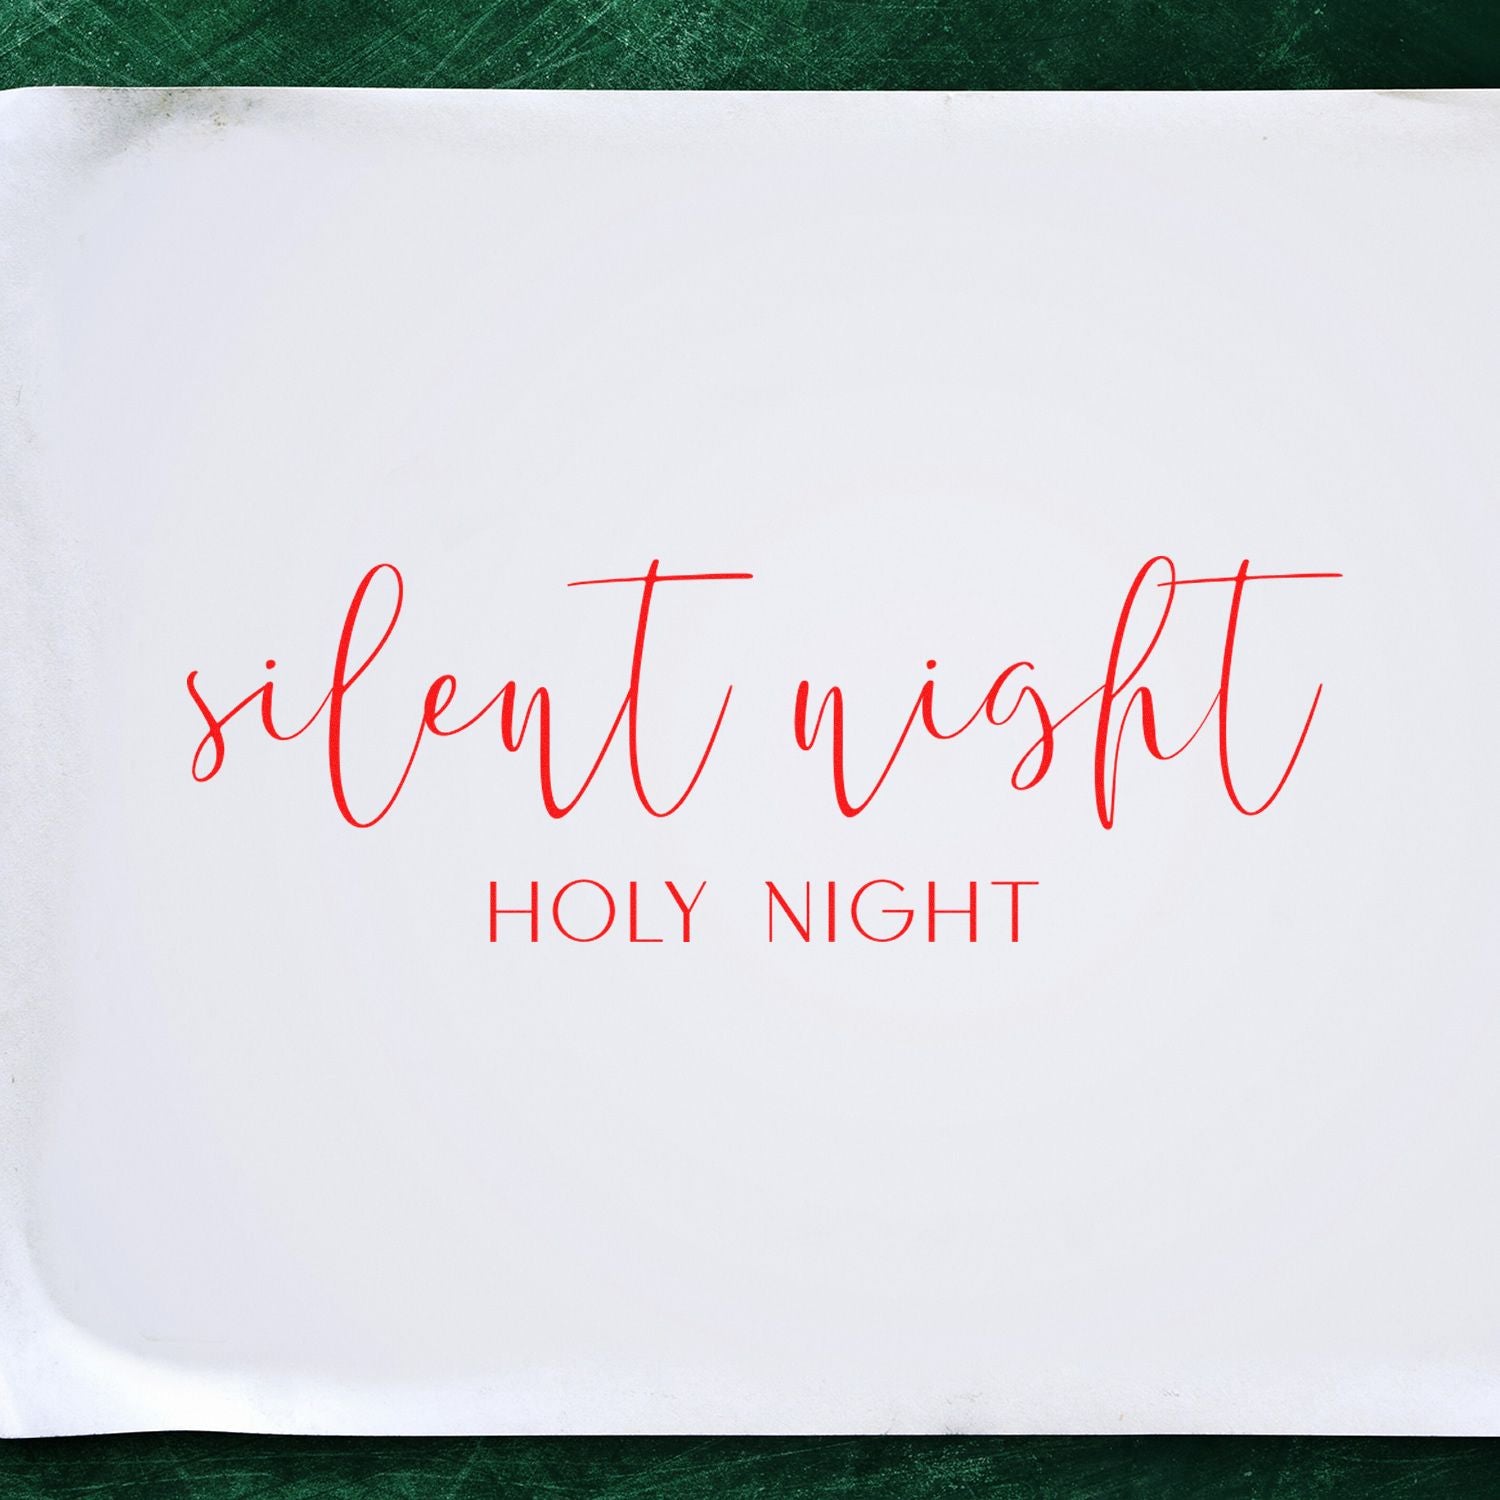 silent night
HOLY NIGHT